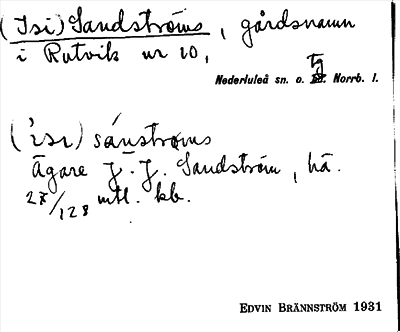 (Isi) Sandströms, gårdsnamn
i Rutvik nr 10,
Nederluleå sn. o. tg Norrb. l.
(ìsi) sánstroms
Ägare J. J. Sandström, hä.
27/128 mtl. kb.
EDVIN BRÄNNSTRÖM 1931